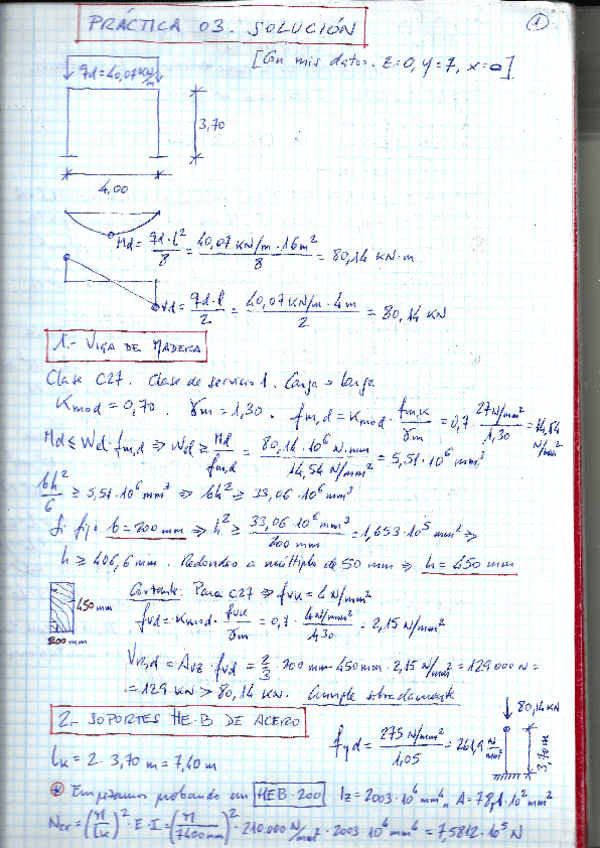 PRÁCTICA 03. SOLUCIÓN
1
[Con mis datos. z=0, y=7, x=0]
qd=40,07 KN/m
3,70
4,00
Md = qd·l²/8 = 40,07 KN/m·16m²/8 = 80,14 KN·m
Vd = qd·l/2 = 40,07 KN/m·4m/2 = 80,14 KN
1.- VIGA DE MADERA
Clase C27. Clase de servicio 1. Carga → larga
Kmod = 0,70. γm = 1,30. fm,d = Kmod · fm,k/γm = 0,7 · 27 N/mm²/1,30 = 14,54 N/mm²
Md ≤ Wd·fm,d ⇒ Wd ≥ Md/fm,d = 80,14·10⁶ N·mm/14,54 N/mm² = 5,51·10⁶ mm³
bh²/6 ≥ 5,51·10⁶ mm³ ⇒ bh² ≥ 33,06·10⁶ mm³
Si fijo b=200 mm ⇒ h² ≥ 33,06·10⁶ mm³/200 mm = 1,653·10⁵ mm² ⇒
h ≥ 406,6 mm. Redondeo a múltiplo de 50 mm ⇒ h=450 mm
450 mm
200 mm
Cortante. Para C27 ⇒ fvk = 4 N/mm²
fvd = Kmod · fvk/γm = 0,7 · 4 N/mm²/1,30 = 2,15 N/mm²
VR,d = Avz · fvd = 2/3 · 200 mm·450mm · 2,15 N/mm² = 129 000 N =
= 129 KN > 80,14 KN. Cumple sobradamente
2.- SOPORTES HE-B DE ACERO
fyd = 275 N/mm²/1,05 = 261,9 N/mm²
80,14 KN
3,70m
lk = 2 · 3,70 m = 7,40 m
* Empezamos probando un HEB-200 Iz = 2003·10⁴ mm⁴, A = 78,1·10² mm²
Ncr = (π/lk)² · E · I = (π/7400mm)² · 210.000 N/mm² · 2003 10⁴ mm⁴ = 7,5812·10⁵ N